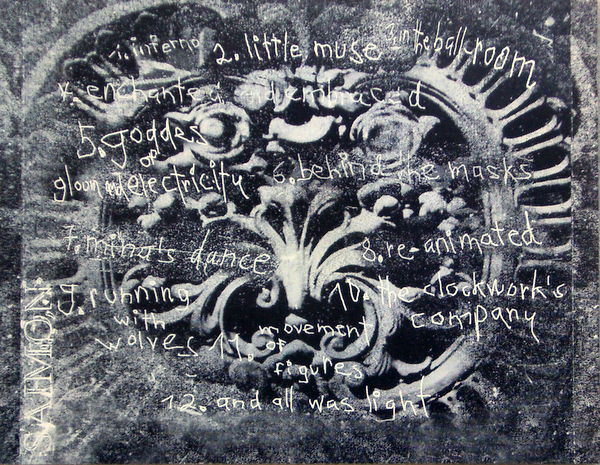 1. inferno
2. little muse
3. in the ballroom
4. enchanted and embraced
5. goddes
of
gloom and electricity
6. behind the masks
7. mina's dance
8. re-animated
9. running
with
wolves
10. the clockwork's
company
11. movement
of
figures
12. and all was light
SAIMON